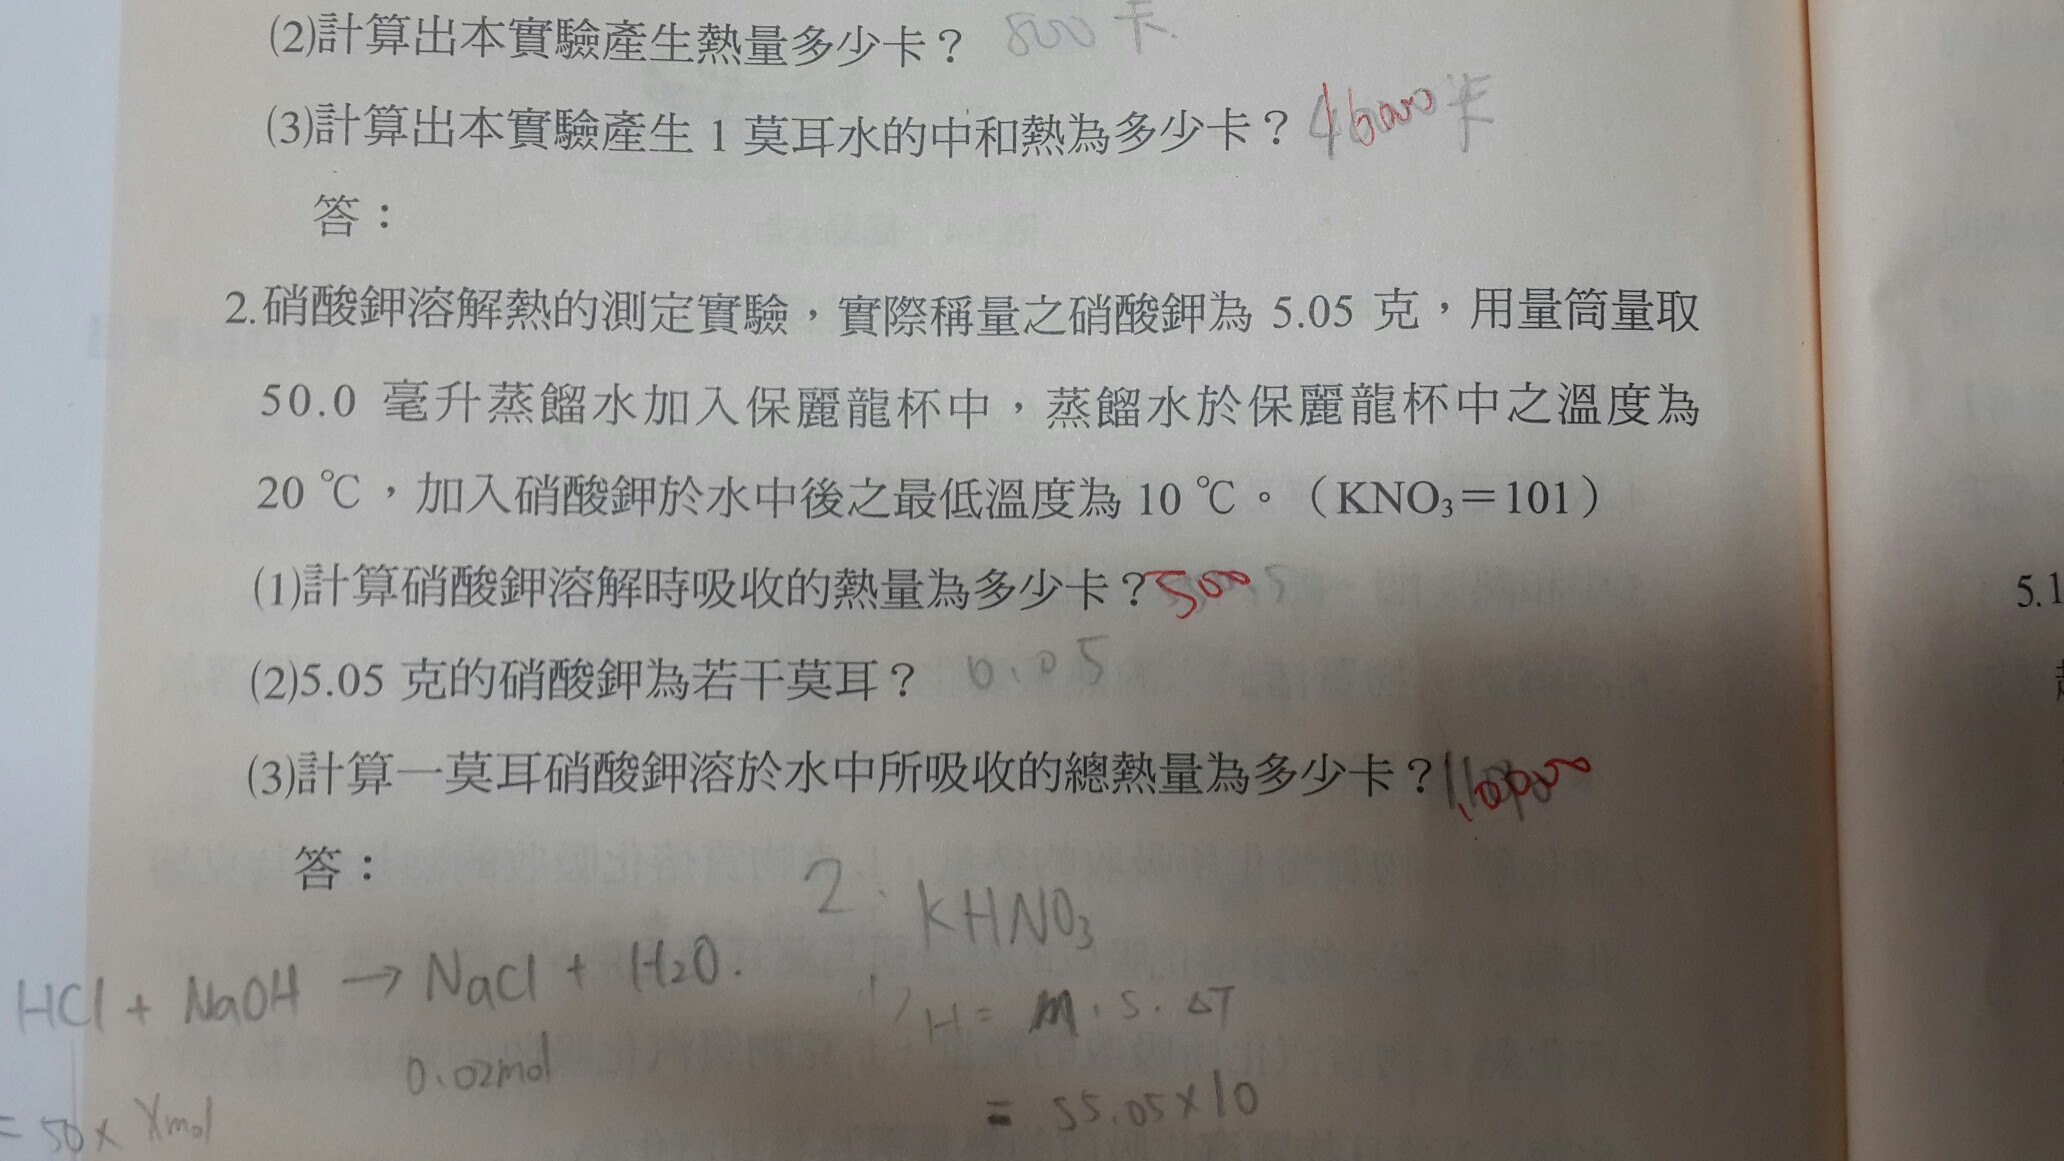 (2)計算出本實驗產生熱量多少卡？ 800卡.
(3)計算出本實驗產生1莫耳水的中和熱為多少卡？ 卡
答：
2.硝酸鉀溶解熱的測定實驗，實際稱量之硝酸鉀為 5.05 克，用量筒量取
50.0 毫升蒸餾水加入保麗龍杯中，蒸餾水於保麗龍杯中之溫度為
20 ℃，加入硝酸鉀於水中後之最低溫度為 10 ℃。（KNO₃＝101）
(1)計算硝酸鉀溶解時吸收的熱量為多少卡？500
(2)5.05 克的硝酸鉀為若干莫耳？ 0.05
(3)計算一莫耳硝酸鉀溶於水中所吸收的總熱量為多少卡？
答：
2. KHNO₃
HCl + NaOH → NaCl + H₂O.
1) H = m.s.ΔT
0.02mol
= 55.05×10
= 50× Xmol
5.1